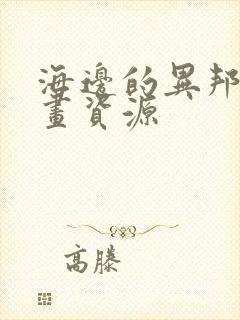 海邊的異邦
畫資源
高滕